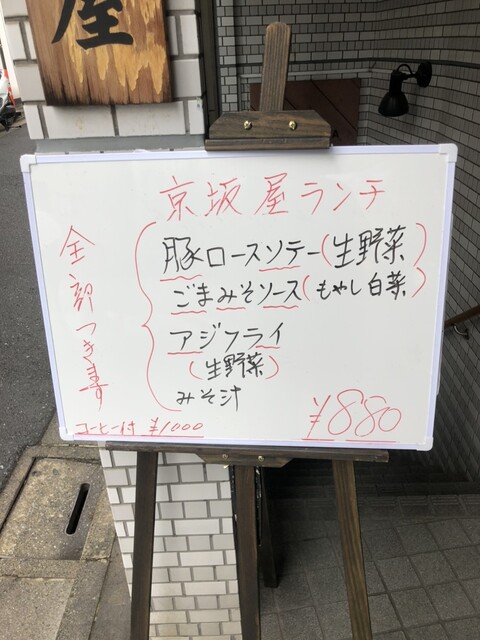 屋
京坂屋ランチ
全部つきます
豚ロースソテー(生野菜)
ごまみそソース(もやし白菜)
アジフライ
(生野菜)
みそ汁
コーヒー付 ¥1000
¥880